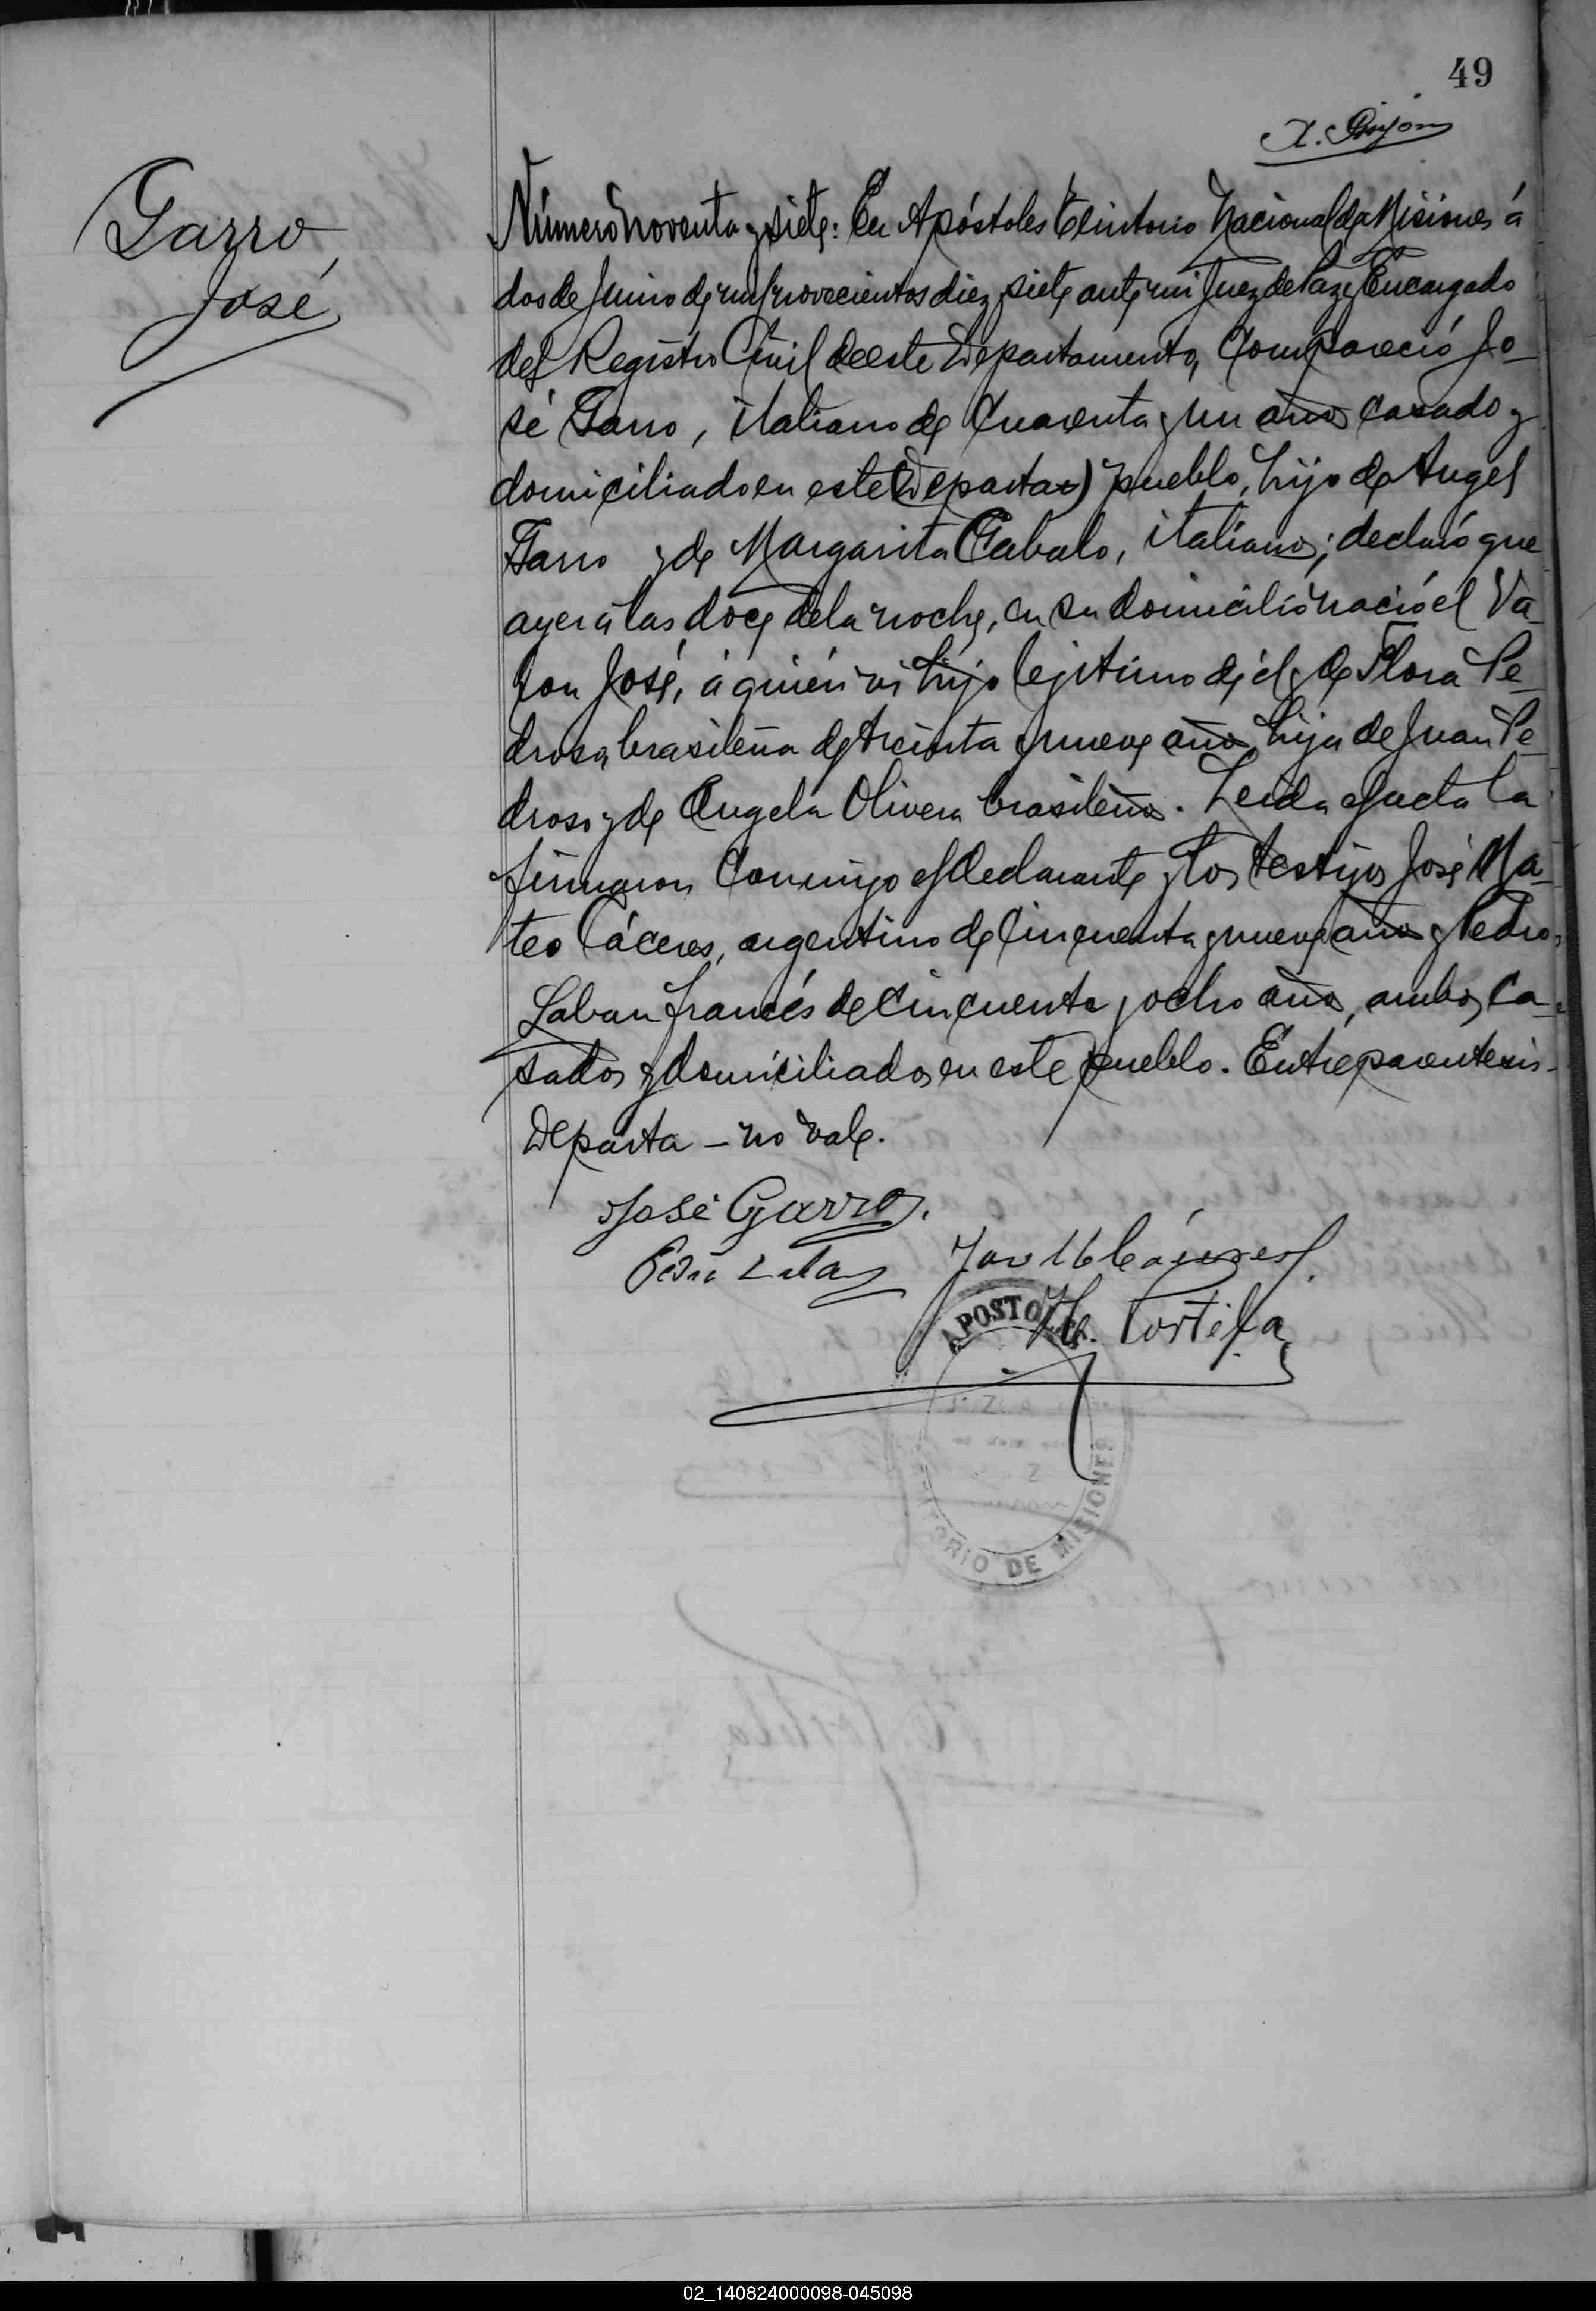 49
Garro,
José
Número noventa y siete: En Apóstoles Territorio Nacional de Misiones á
dos de Junio de mil novecientos diez y siete ante mi Juez de Paz y Encargado
del Registro Civil de este Departamento, Compareció Jo-
sé Garro, italiano de Cuarenta y un años casado y
domiciliado en este (Departa) pueblo, hijo de Angel
Garro y de Margarita Cabalo, italianos; declaró que
ayer á las doce de la noche, en su domicilio nació el Va-
ron José, á quién vi hijo legitimo de él y de Flora Pe-
drosa brasileña de treinta y nueve años, hija de Juan Pe-
droso y de Angela Olivera brasileños. Leida el acta la
firmaron Conmigo el declarante y los testigos José Ma-
teo Cáceres, argentino de Cincuenta y nueve años y Pedro
Laban francés de Cincuenta y ocho años, ambos ca-
sados y domiciliados en este pueblo. Entreparentesis-
Departa - no vale.
José Garro.
José M Cáceres
APOSTOLES
H. Portela
TERRITORIO DE MISIONES
02_140824000098-045098